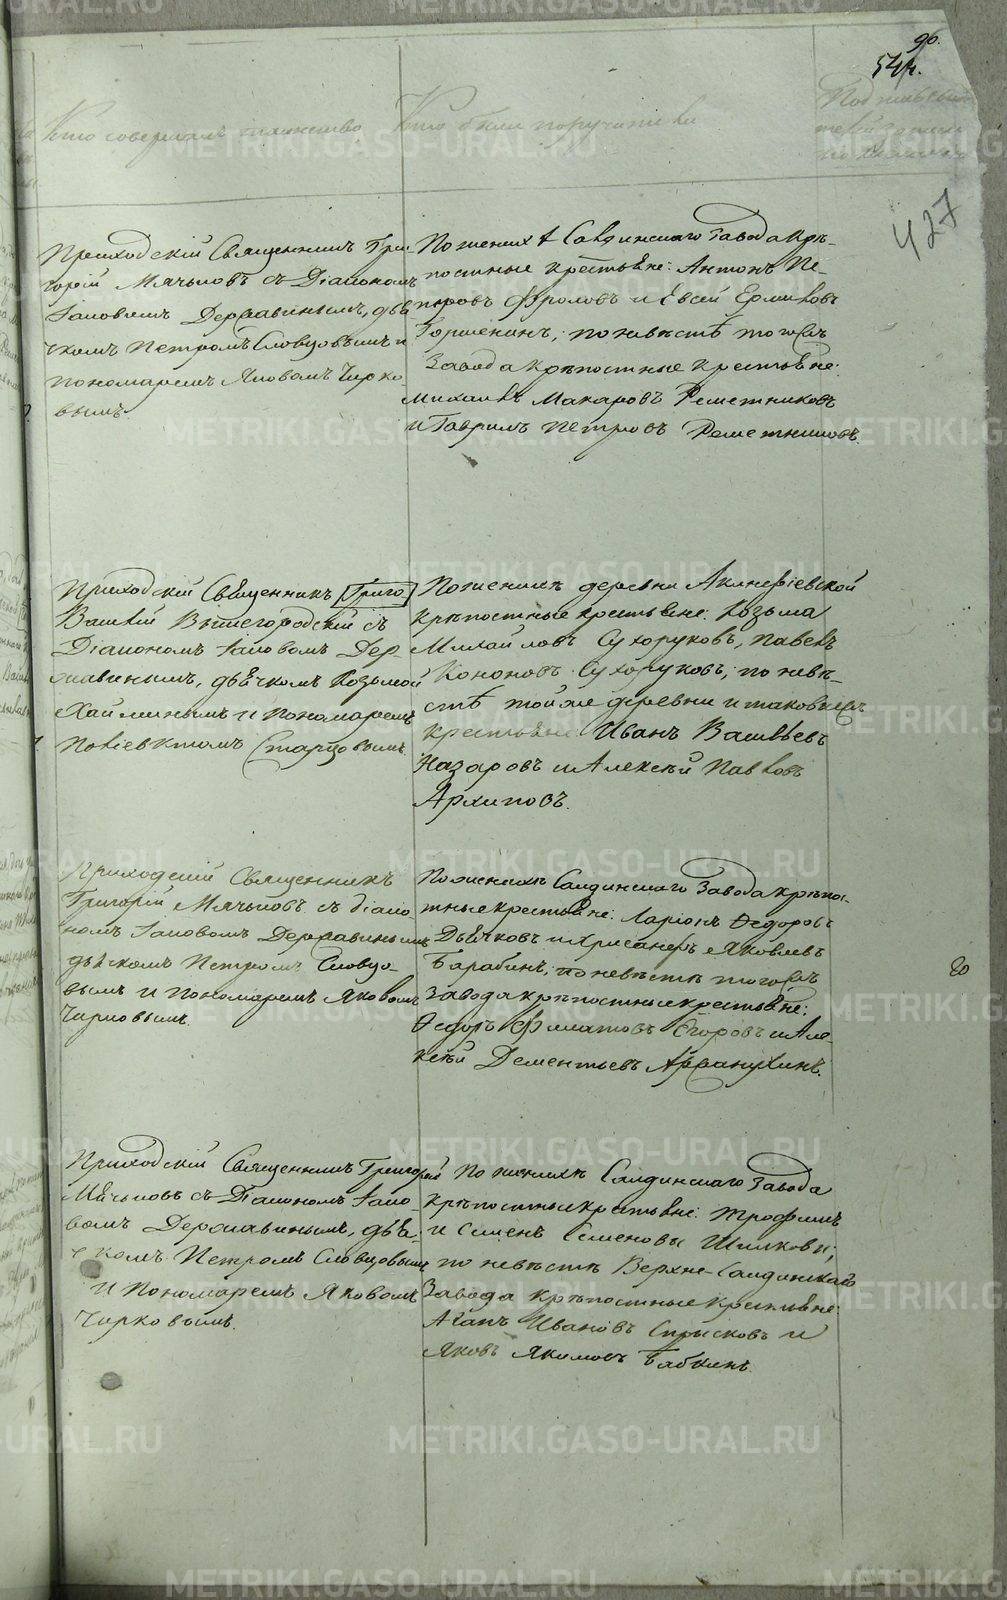 90.
544.
Кто совершалъ таинство
Кто были поручители
427
Приходскій Священникъ Гри-
горій Мячковъ съ Діакономъ
Іаковомъ Державинымъ, дья-
чкомъ Петромъ Словцовымъ и
пономаремъ Яковомъ Чирко-
вымъ.
По женихѣ Салдинскаго Завода крѣ-
постные крестьяне: Антонъ Пе-
тровъ Фроловъ и Евсей Ермиловъ
Горшенинъ; по невѣстѣ того жъ
Завода крѣпостные крестьяне:
Михаилъ Макаровъ Решетниковъ
и Гаврилъ Петровъ Решетниковъ.
Приходскій Священникъ Григо
Василій Вытегородскій съ
Діакономъ Іаковомъ Дер-
жавинымъ, дьячкомъ Козьмой
и Пономаремъ
Старцовымъ
По женихѣ деревни Акинфіевской
крѣпостные крестьяне: Козьма
Михайловъ Сухоруковъ, Павелъ
Кононовъ Сухоруковъ; по невѣ-
стѣ той же деревни и таковые жъ
крестьяне Иванъ Васильевъ
Назаровъ и Алексѣй Павловъ
Архиповъ.
Приходскій Священникъ
Григорій Мячковъ съ діако-
номъ Іаковомъ Державинымъ
дьячкомъ Петромъ Словцо-
вымъ и пономаремъ Яковомъ
Чирковымъ.
По женихѣ Салдинскаго Завода крѣпос-
тные крестьяне: Ларіонъ Ѳедоровъ
Дьячковъ и Хрисанфъ Яковлевъ
Барабинъ; по невѣстѣ того жъ
Завода крѣпостные крестьяне:
Ѳедоръ Филатовъ Егоровъ и Але-
ксѣй Дементьевъ
80
Приходскій Священникъ Григорій
Мячковъ съ Діакономъ Іако-
вомъ Державинымъ, дья-
чкомъ Петромъ Словцовымъ
и Пономаремъ Яковомъ
Чирковымъ.
По женихѣ Салдинскаго Завода
крѣпостные крестьяне: Трофимъ
и Семенъ Семеновы Шилковы;
по невѣстѣ Верхне-Салдинскаго
Завода крѣпостные крестьяне:
Агапъ Ивановъ Спрысковъ и
Яковъ Якимовъ Бабкинъ.